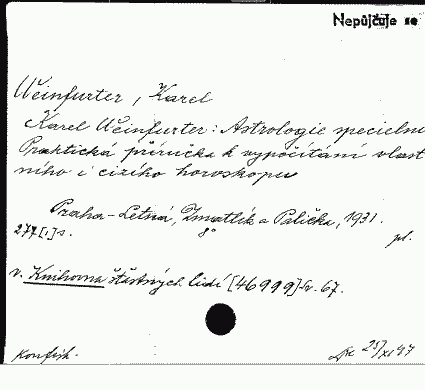 Nepůjčuje se
Weinfurter, Karel
Karel Weinfurter: Astrologie specielní
Praktická příručka k vypočítání vlast
ního i cizího horoskopu
Praha-Letná, Zmatlík a Palička, 1931.
277[1]s. 8° pl.
v. Knihovna šťastných lidí [46999] Sv. 67.
konfisk. 25/XI 47